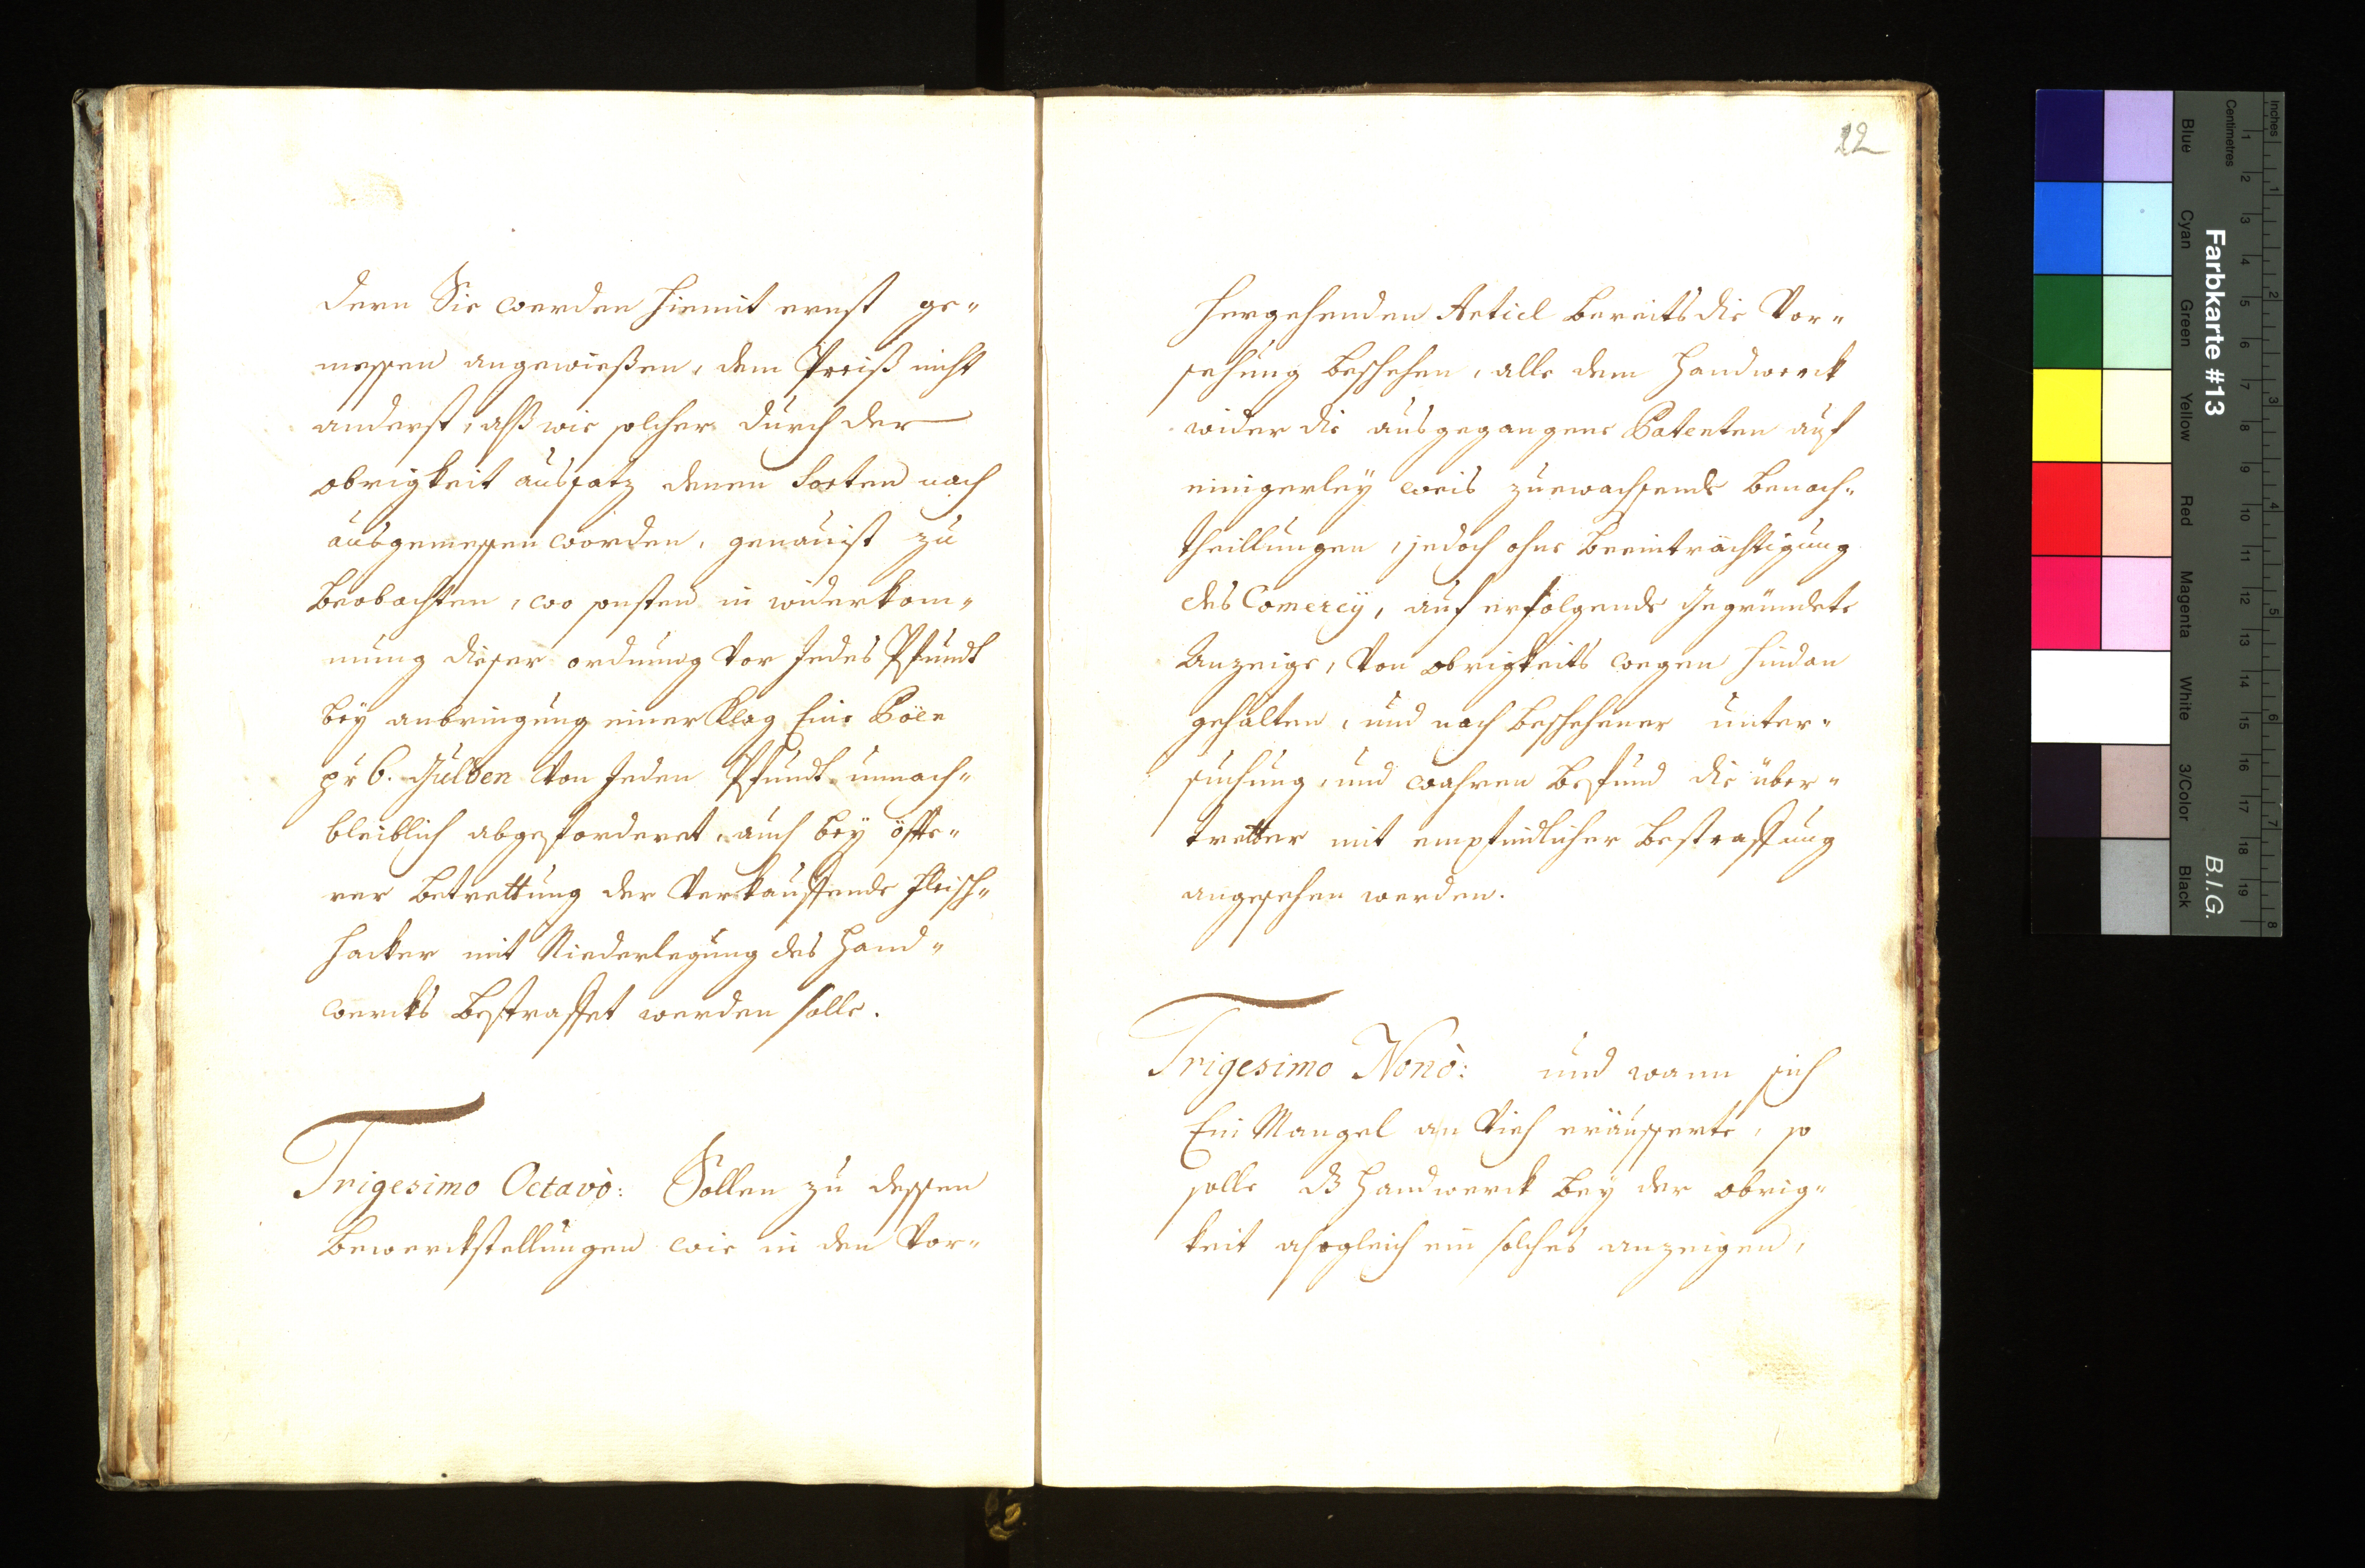 dern Sie werden hiemit ernst ge-
messen angewießen, dem Preiß nicht
anderst, alß wie solcher durch der
obrigkeit aussatz denen Sorten nach
ausgemessen worden, genauist zu
beobachten, wo sonsten in widerkom-
mung dieser ordnung vor Jedes Pfundt
bey anbringung einer Klag Eine Pöen
pr 6. Gulden von Jeden Pfundt unnach-
bleiblich abgeforderet, auch bey öffte-
rer betrettung der verkauffende fleisch-
hacker mit Niederlegung des Hand-
wercks bestraffet werden solle.
Trigesimo Octavò: Sollen zu dessen
bewerckstellungen wie in den Vor-
22
hergehenden Articl bereits die Vor-
sehung beschehen, alle dem Handwerck
wider die ausgegangene Patenten auf
einigerley weis zuewachsende benach-
theillungen, jedoch ohne beeinträchtigung
des Comercÿ, auf erfolgende Gegründete
Anzeige, von obrigkeits wegen hindan
gehalten, und nach beschehener unter-
suchung, und wahren befund die über-
tretter mit empfindlicher bestraffung
angesehen werden.
Trigesimo Nonò: und wann sich
Ein Mangel an Vieh eräusserte, so
solle dz Handwerck bey der obrig-
keit alsogleich ein solches anzeigen,
Farbkarte #13
B.I.G.
Inches
Centimetres
Blue
Cyan
Green
Yellow
Red
Magenta
White
3/Color
Black
1 2 3 4 5 6 7 8 9 10 11 12 13 14 15 16 17 18 19
1 2 3 4 5 6 7 8